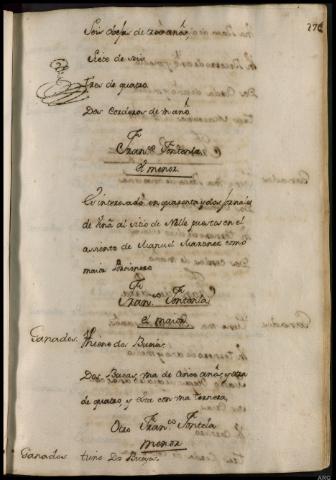 Seis obejas de tres años,
Siete de seis
Tres de quatro
Dos Corderos de un año
Fran.co Fontanla
el menor
Es interesado en quarenta y dos ferra.s
de Viña al sitio de Mille puertas en el
asiento de Manuel Marones como
maior Porzionero
Fran.co Fontanla
el maior
Ganados. tiene dos Bueies
Dos Bacas, una de cinco años y otra
de quatro, y esta con una ternera,
Otro Fran.co Fontela
menor
Ganados tiene Dos Bueyes